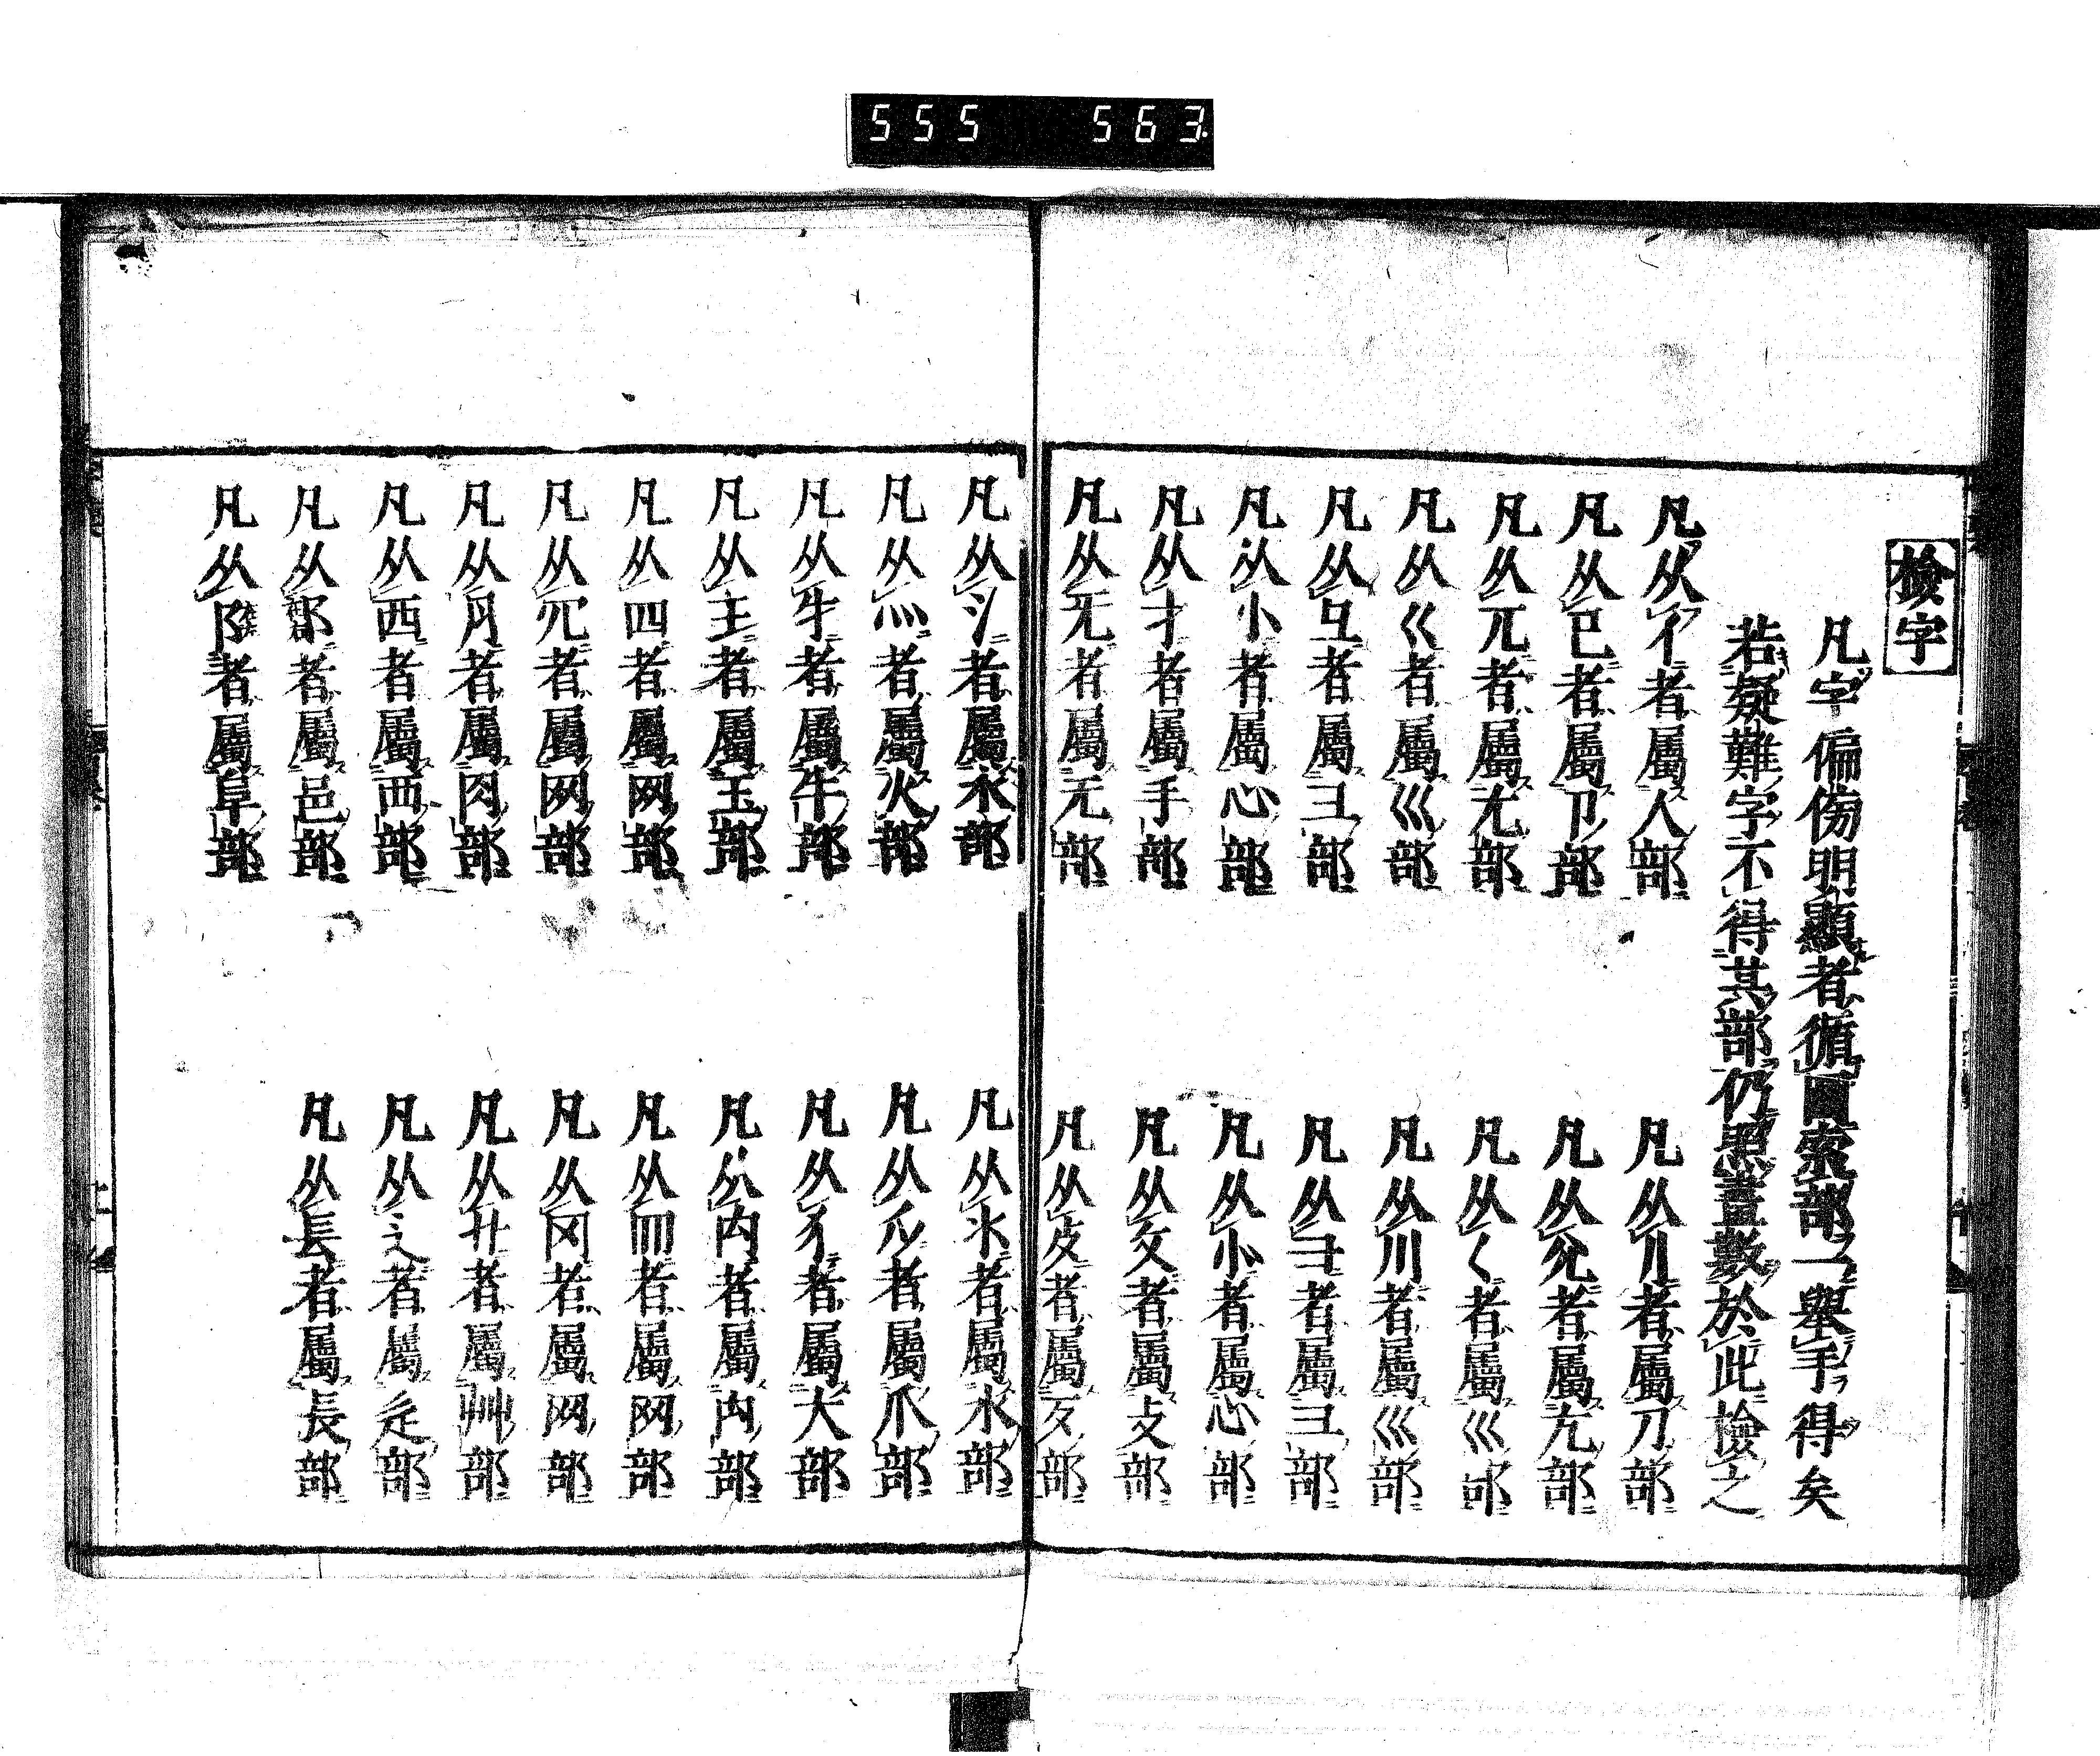 555 563
檢字
凡字偏傍明顯者循圖索部一舉手得矣
若疑難字不得其部仍照畫數於此檢之
凡从亻者屬人部
凡从刂者屬刀部
凡从㔾者屬卩部
凡从尣者屬尢部
凡从兀者屬尢部
凡从𡿨者屬巛部
凡从巜者屬巛部
凡从川者屬巛部
凡从彑者屬彐部
凡从彐者屬彐部
凡从忄者屬心部
凡从㣺者屬心部
凡从扌者屬手部
凡从攵者屬攴部
凡从旡者屬无部
凡从歺者屬歹部
凡从氵者屬水部
凡从氺者屬水部
凡从灬者屬火部
凡从爫者屬爪部
凡从牜者屬牛部
凡从犭者屬犬部
凡从王者屬玉部
凡从禸者屬禸部
凡从四者屬网部
凡从罒者屬网部
凡从㓁者屬网部
凡从冈者屬网部
凡从月者屬肉部
凡从艹者屬艸部
凡从西者屬襾部
凡从辶者屬辵部
凡从阝者屬邑部
凡从镸者屬長部
凡从阝者屬阜部